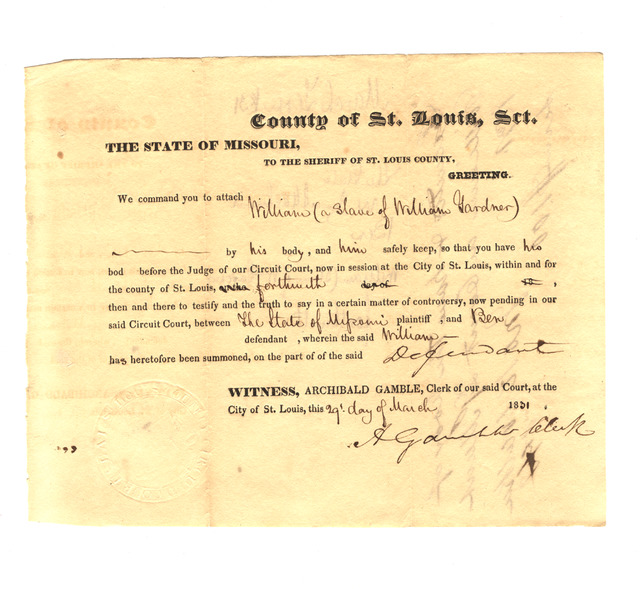 County of St. Louis, Sct.
THE STATE OF MISSOURI,
TO THE SHERIFF OF ST. LOUIS COUNTY,
GREETING.
We command you to attach William (a slave of William Gardner)
by his body, and him safely keep, so that you have his
bod before the Judge of our Circuit Court, now in session at the City of St. Louis, within and for
the county of St. Louis, forthwith day of 18 ,
then and there to testify and the truth to say in a certain matter of controversy, now pending in our
said Circuit Court, between The State of Missouri plaintiff, and Ben
defendant , wherein the said William
has heretofore been summoned, on the part of of the said Defendant
WITNESS, ARCHIBALD GAMBLE, Clerk of our said Court, at the
City of St. Louis, this 29th day of March 1831.
A Gamble Clerk